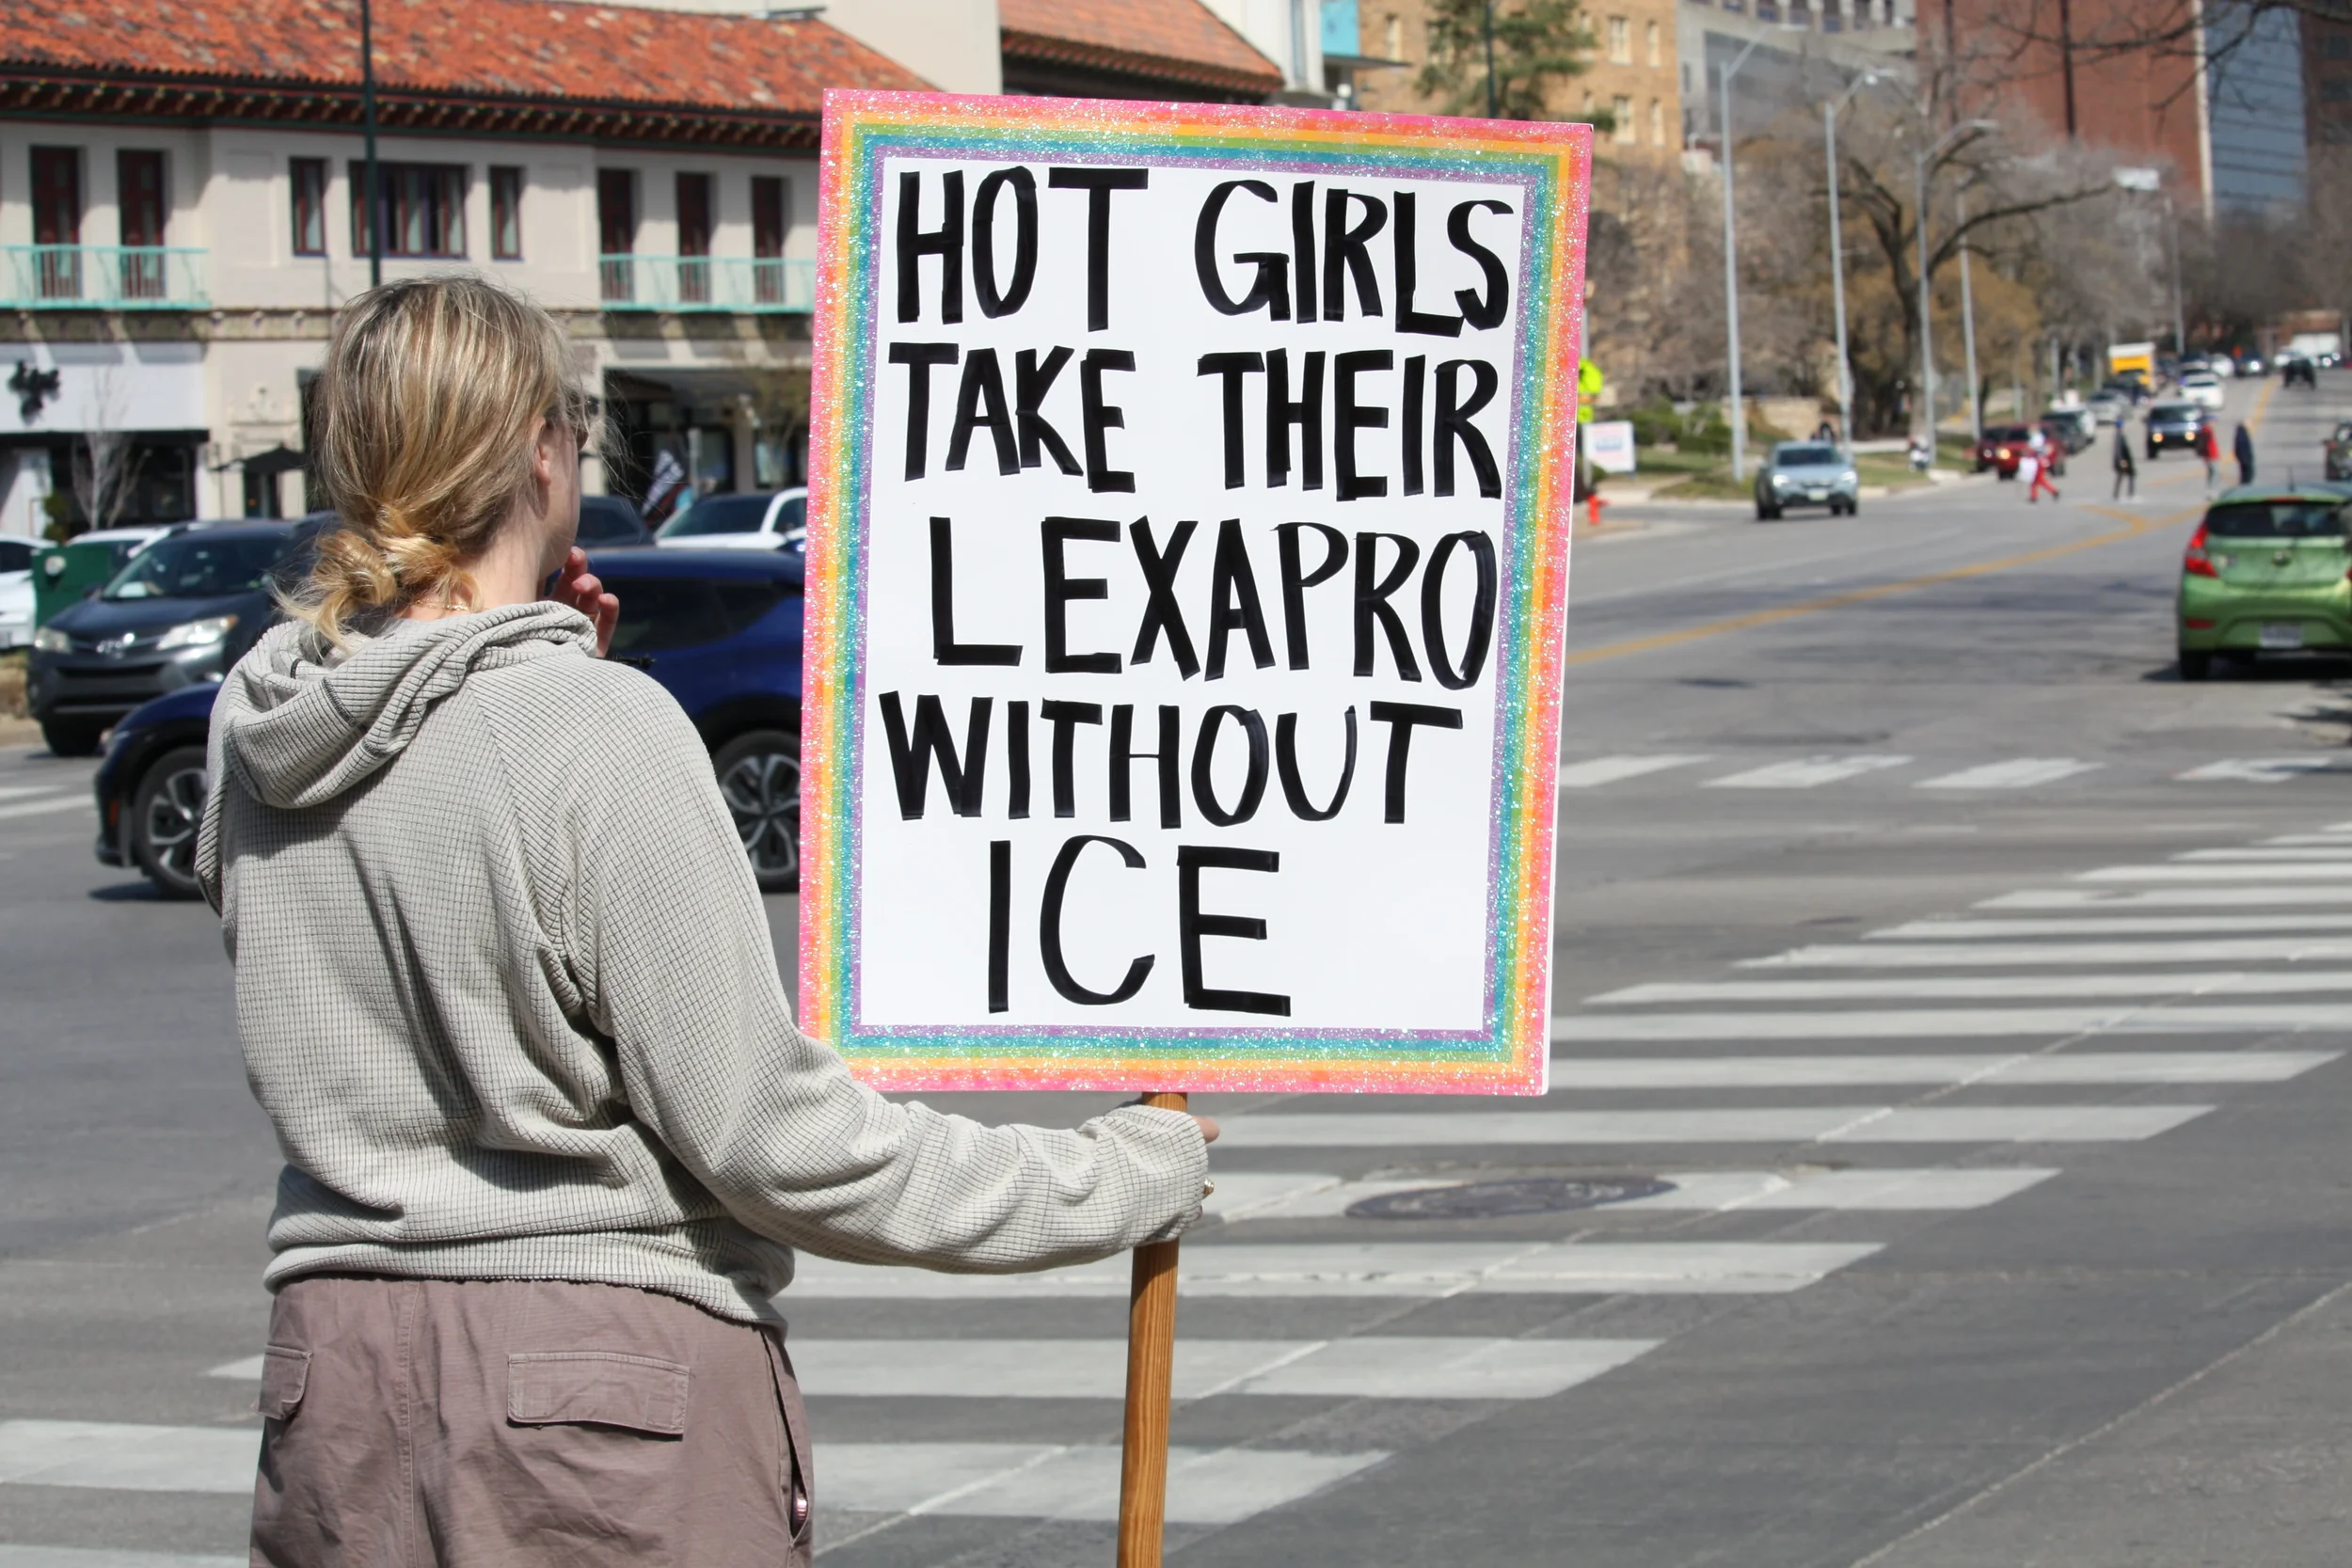 HOT GIRLS
TAKE THEIR
LEXAPRO
WITHOUT
ICE